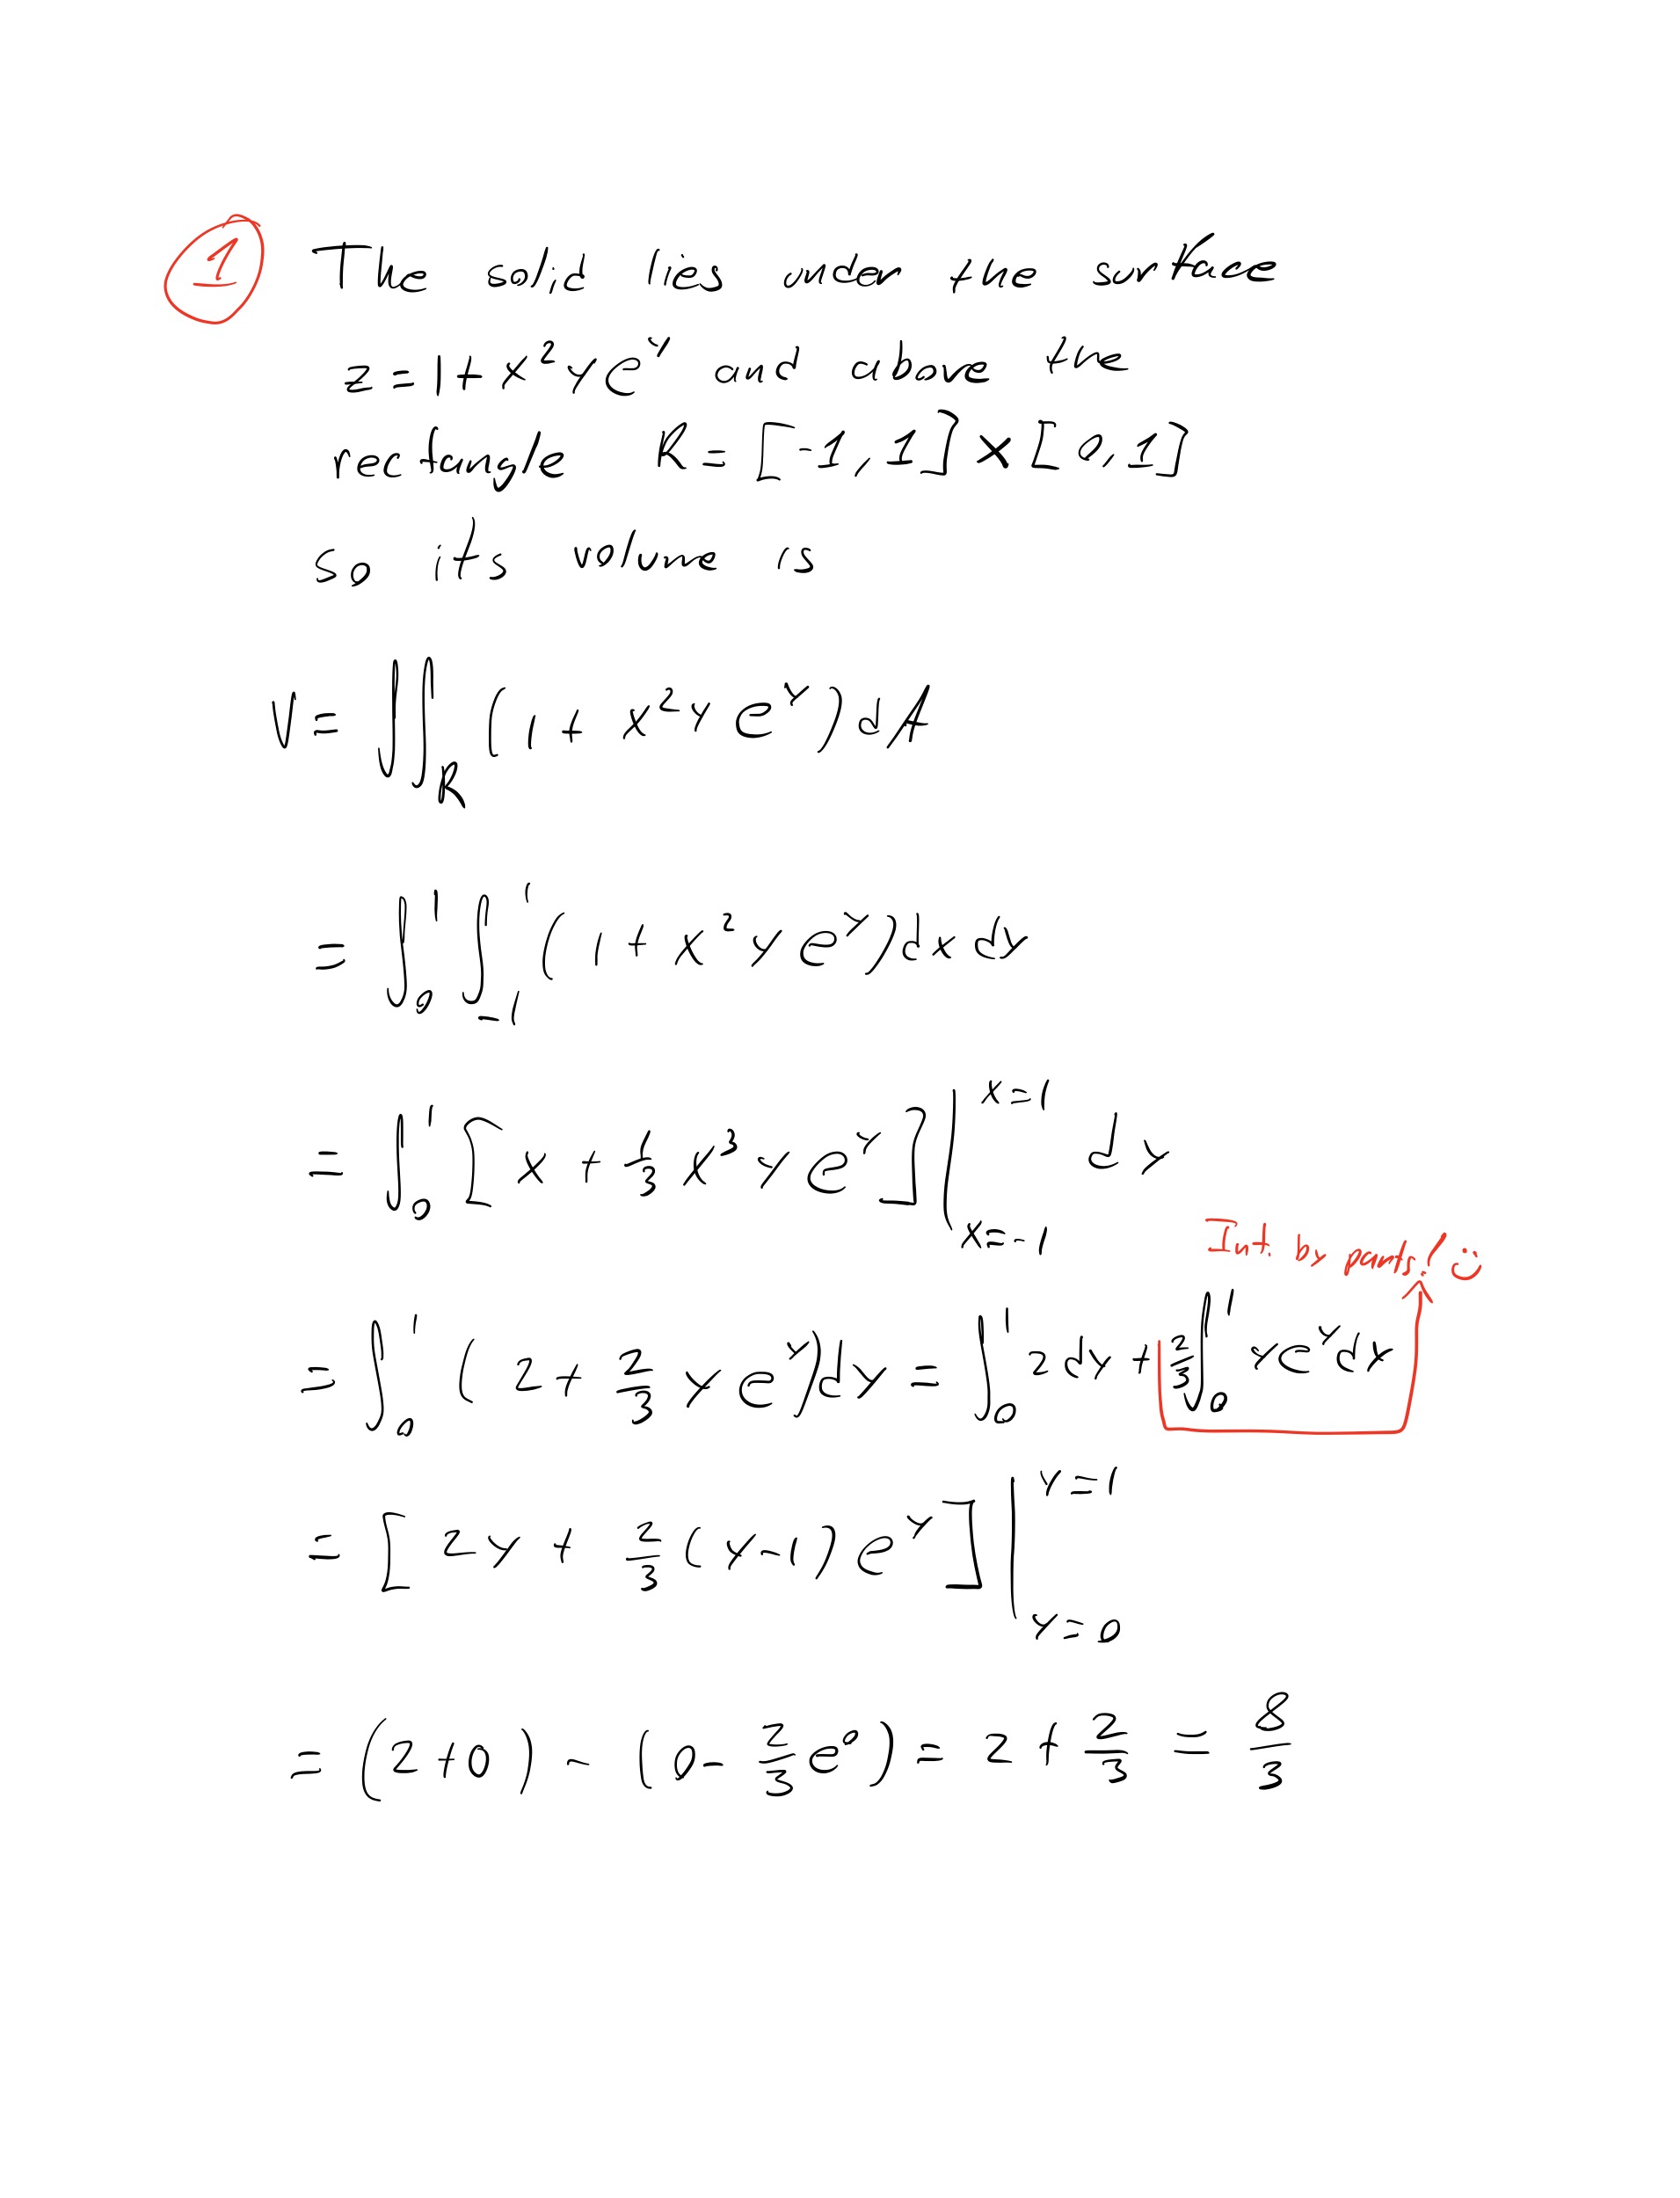 1 The solid lies under the surface
z = 1 + x²ye^y and above the
rectangle R = [-1, 1] × [0, 1]
so its volume is
V = ∬_R (1 + x²y e^y) dA
= ∫_0^1 ∫_{-1}^1 (1 + x²y e^y) dx dy
= ∫_0^1 [x + 1/3 x³ y e^y] |_{x=-1}^{x=1} dy
Int. by parts! :)
= ∫_0^1 (2 + 2/3 y e^y) dy = ∫_0^1 2 dy + 2/3 ∫_0^1 y e^y dy
= [2y + 2/3 (y-1) e^y] |_{y=0}^{y=1}
= (2+0) - (0 - 2/3 e^0) = 2 + 2/3 = 8/3